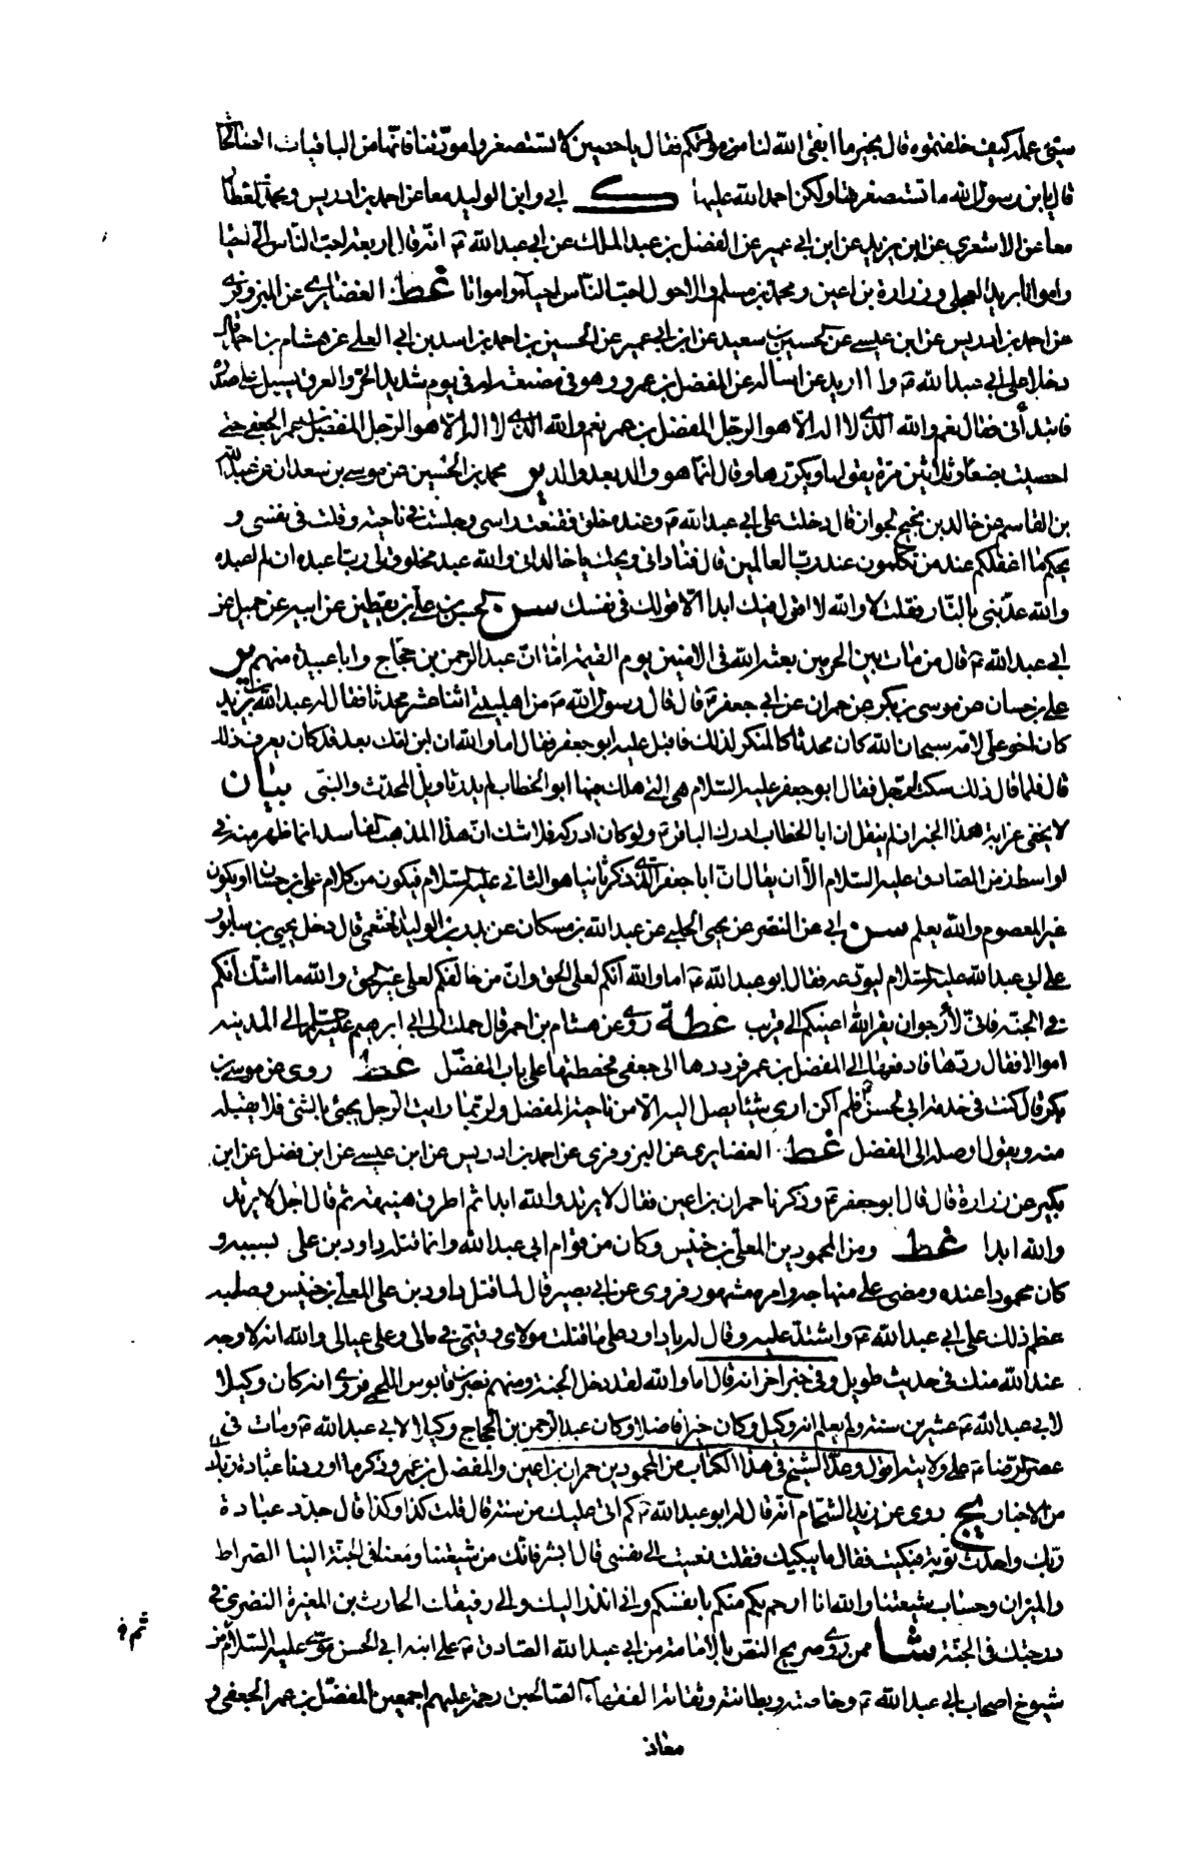 شيئ عملك كيف خلفتموه قال بخير ما ابقى الله لنا من مودتكم فقال يا حصين لا تستصغروا مودتنا فانها من الباقيات الصالحات
قال يا بن رسول الله ما تستصغرها ولكن احمد الله عليها ك ابي وابن الوليد معا عن احمد بن ادريس ومحمد العطار
معا عن الاشعري عن ابن يزيد عن ابن ابي عمير عن الفضل بن عبد الملك عن ابي عبد الله ع انه قال اربعة احب الناس الي احيا
وامواتا بريد العجلي وزرارة بن اعين ومحمد بن مسلم والاحول احب الناس الي احياء وامواتا غط الغضايري عن البزوفري
عن احمد بن ادريس عن ابن عيسى عن الحسين بن سعيد عن ابن ابي عمير عن الحسين بن احمد بن اسد بن ابي العلى عن هشام بن احمر قال
دخلت على ابي عبد الله ع وانا اريد ان اساله عن المفضل بن عمرو وهو في ضيعة له في يوم شديد الحر والعرق يسيل على صدره
فابتدأني فقال نعم والله الذي لا اله الا هو الرجل المفضل بن عمر نعم والله الذي لا اله الا هو الرجل المفضل بن عمر الجعفي حتى
احصيت بضعا وثلاثين مرة يقولها ويكررها وقال انما هو والد بعد والد يق محمد بن الحسين عن موسى بن سعدان عن عبد الله
بن القاسم عن خالد بن نجيح الجوان قال دخلت على ابي عبد الله ع وعنده خلق فقنعت راسي وجلست في ناحية وقلت في نفسي و
يحكم ما اغفلكم عند من تكلمون عند رب العالمين قال فناداني ويحك يا خالد اني والله عبد مخلوق لي رب اعبده ان لم اعبده
والله عذبني بالنار فقلت لا والله لا اقول فيك ابدا الا قولك في نفسك سن الحسن بن علي بن يقطين عن ابيه عن جميل عن
ابي عبد الله ع قال من مات بين الحرمين بعثه الله في الامنين يوم القيمة اما ان عبد الرحمن بن حجاج وابا عبيدة منهم يق
علي بن حسان عن موسى بن بكر عن حمران عن ابي جعفر ع قال قال رسول الله ص من اهل بيتي اثنا عشر محدثا فقال له عبد الله بن زيد
كان اخو علي لامه سبحان الله كان محدثا كالمنكر لذلك فاقبل عليه ابو جعفر فقال اما والله ان ابن امك بعد قد كان يعرف ذلك
قال فلما قال ذلك سكت الرجل فقال ابو جعفر عليه السلام هي التي هلك فيها ابو الخطاب لم يدر تاويل المحدث والنبي بيان
لا يخفى غرابة هذا الخبر ان لم ينقل ان ابا الخطاب ادرك الباقر ع ولو كان ادركه فلا شك ان هذا المذهب الفاسد انما ظهر منه في
اواسط زمن الصادق عليه السلام الا ان يقال ان ابا جعفر الذي ذكر ثانيا هو الثاني عليه السلام فيكون من كلام علي بن حسان او يكون
غير المعصوم والله يعلم سن ابي عن النضر عن يحيى الحلبي عن عبد الله بن مسكان عن بدر بن الوليد الخثعمي قال دخل يحيى بن سابور
على ابي عبد الله عليه السلام ليودعه فقال ابو عبد الله ع اما والله انكم لعلى الحق وان من خالفكم لعلى غير الحق والله ما اشك انكم
في الجنة فاني لأرجو ان يقر الله اعينكم الى قريب غط روى عن هشام بن احمر قال حملت الى ابي ابرهيم عليه السلام الى المدينة
اموالا فقال ردها فادفعها الى المفضل بن عمر فرددها الى جعفي فحططتها على باب المفضل غط روى عن موسى بن
بكر قال كنت في خدمة ابي الحسن ع فلم اكن ارى شيئا يصل اليه الا من ناحية المفضل ولربما رايت الرجل يجيئ بالشئ فلا يقبله
منه ويقول اوصله الى المفضل غط الغضايري عن البزوفري عن احمد بن ادريس عن ابن عيسى عن ابن فضل عن ابن
بكير عن زرارة قال قال ابو جعفر ع وذكرنا حمران بن اعين فقال لا يرتد والله ابدا ثم اطرق هنيهة ثم قال اجل لا يرتد
والله ابدا غط ومن المحمودين المعلى بن خنيس وكان من قوام ابي عبد الله وانما قتله داود بن علي بسببه و
كان محمودا عنده ومضى على منهاجه وامره مشهور فروى عن ابي بصير قال لما قتل داود بن علي المعلى بن خنيس وصلبه
عظم ذلك على ابي عبد الله ع واشتد عليه وقال له يا داود على ما قتلت مولاي وقيمي في مالي وعلى عيالي والله انه لاوجه
عند الله منك في حديث طويل وفي خبر اخر انه قال اما والله لقد دخل الجنة ومنهم نصر بن قابوس اللخمي فروى انه كان وكيلا
لابي عبد الله ع عشرين سنة ولم يعلم انه وكيل وكان خيرا فاضلا وكان عبد الرحمن بن الحجاج وكيلا لابي عبد الله ع ومات في
عصر الرضا ع على ولايته اقول وعد الشيخ في هذا الكتاب من المحمودين حمران بن اعين والمفضل بن عمر وذكر ما اوردنا
من الاخبار يج روى عن زيد الشحام انه قال له ابو عبد الله ع كم اتى عليك من سنة قال قلت كذا وكذا قال جدد عبادة
ربك واحدث توبة فبكيت فقال ما يبكيك فقلت نعيت الى نفسي قال ابشر فانك من شيعتنا ومعنا في الجنة الينا الصراط
والميزان وحساب شيعتنا والله انا ارحم بكم منكم بانفسكم واني انظر اليك والى رفيقك الحارث بن المغيرة النضري في
درجتك في الجنة شا ممن روى صريح النص بالامامة من ابي عبد الله الصادق ع على ابنه ابي الحسن موسى عليه السلام من
شيوخ اصحاب ابي عبد الله ع وخاصته وبطانته وثقاته الفقهاء الصالحين رحمة عليهم اجمعين المفضل بن عمر الجعفي و
معاذ